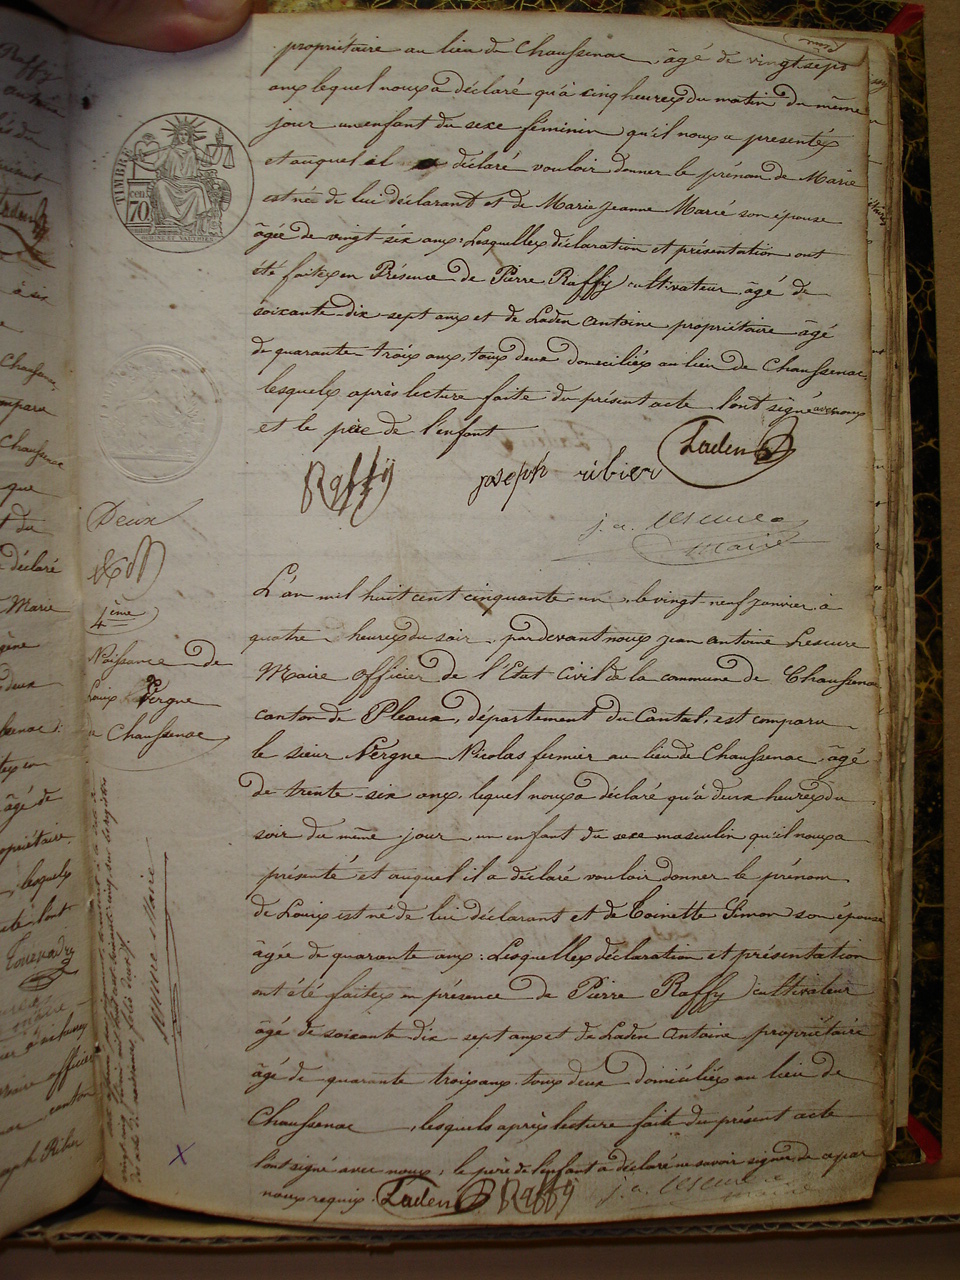 propriétaire au lieu de Chaussenac, âgé de vingt sept
ans lequel nous a déclaré qu'à cinq heures du matin du même
jour un enfant du sexe féminin qu'il nous a presentés
et auquel il a déclaré vouloir donner le prénom de Marie
est né de lui déclarant et de Marie Jeanne Marié son épouse
âgée de vingt six ans : Lesquelles déclaration et présentation ont
été faites en Présence de Pierre Raffy cultivateur âgé de
soixante-dix-sept ans et de Laden Antoine propriétaire âgé
de quarante-trois ans, tous deux domiciliés au lieu de Chaussenac,
lesquels après lecture faite du présent acte l'ont signé avec nous
et le père de l'enfant
Raffy joseph ribier Laden
j. a. Lescure
maire
TIMBRE
70 cen
Deux
4ème
Naissance de
Louis Vergne
a Chaussenac
L'an mil huit cent cinquante-un, le vingt neuf janvier, à
quatre heures du soir, pardevant nous jean antoine Lescure
Maire officier de l'Etat Civil de la commune de Chaussenac
canton de Pleaux, département du Cantal, est comparu
le sieur Vergne Nicolas fermier au lieu de Chaussenac, âgé
de trente-six ans, lequel nous a déclaré qu'à deux heures du
soir du même jour un enfant du sexe masculin qu'il nous a
présenté et auquel il a déclaré vouloir donner le prénom
de Louis est né de lui déclarant et de Toinette Simon son épouse
âgée de quarante ans : Lesquelles déclaration et présentation
ont été faites en présence de Pierre Raffy cultivateur
âgé de soixante dix-sept ans et de Laden Antoine propriétaire
âgé de quarante trois ans, tous deux domiciliés au lieu de
Chaussenac, lesquels après lecture faite du présent acte
l'ont signé avec nous, le père de l'enfant a déclaré ne savoir signer de ce par
nous requis. Laden Raffy j. a. Lescure
maire